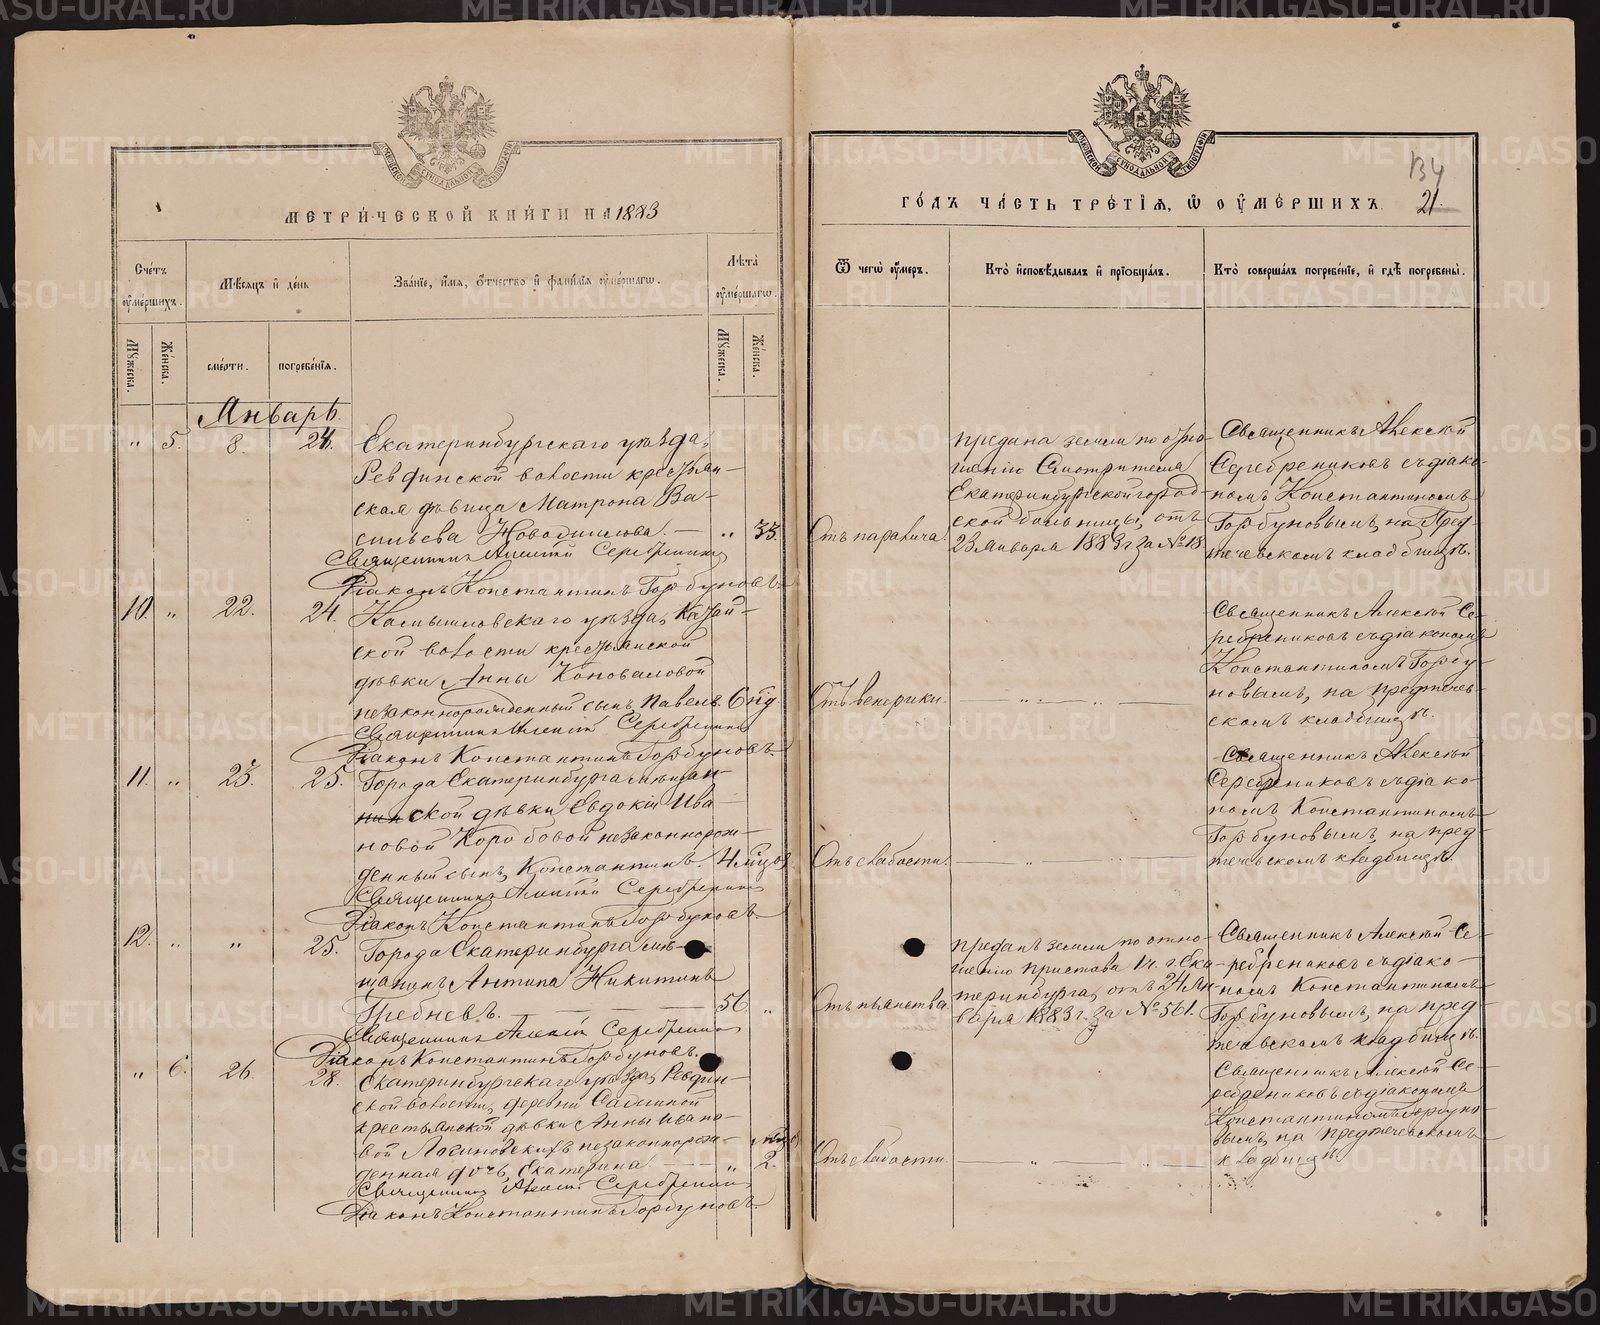 МЕТРИЧЕСКОЙ КНИГИ НА 1883
Счетъ умершихъ.
Мѣсяцъ и день
Званіе, имя, отчество и фамилія умершаго.
Лѣта умершаго.
Мужеска.
Женска.
смерти.
погребенія.
Мужеска.
Женска.
Январь.
" 5. 8. 24. Екатеринбургскаго уѣзда,
Ревдинской волости крестьян-
ская дѣвица Матрона Ва-
сильева — " 33.
Священникъ Алексій Серебренниковъ
Діаконъ Константинъ Горбуновъ.
10. " 22. 24. Камышловскаго уѣзда,
ской волости крестьянской
дѣвки Анны Коноваловой
незаконнорожденный сынъ Павелъ 6
Священникъ Алексій Серебренниковъ
Діаконъ Константинъ Горбуновъ.
11. " 23. 25. Города Екатеринбурга мѣщан-
ской дѣвки Евдокіи Ива-
новой Коробовой незаконнорож-
денный сынъ Константинъ. 4
Священникъ Алексій Серебренниковъ
Діаконъ Константинъ Горбуновъ.
12. " " 25. Города Екатеринбурга мѣ-
щанинъ Антипа Никитинъ
Гребневъ. 56 "
Священникъ Алексій Серебренниковъ
Діаконъ Константинъ Горбуновъ.
" 6. 26. 28. Екатеринбургскаго уѣзда, Ревдин-
ской волости, деревни
крестьянской дѣвки Анны Ивано-
вой незаконнорож-
денная дочь Екатерина. — " 2.
Священникъ Алексій Серебренниковъ
Діаконъ Константинъ Горбуновъ.
ГОДЪ ЧАСТЬ ТРЕТІЯ, Ѿ ОУМЕРШИХЪ.
134
21.
Ѿ чегѡ умеръ.
Кто исповѣдывалъ и пріобщалъ.
Кто совершалъ погребеніе, и гдѣ погребены.
Отъ паралича.
предана землѣ по отно-
шенію Смотрителя
Екатеринбургской город-
ской больницы, отъ
23 Января 1883 г. за № 18.
Священникъ Алексій
Серебрениковъ съ діако-
номъ Константиномъ
Горбуновымъ, на Пред-
течевскомъ кладбищѣ.
Отъ венерики.
Священникъ Алексій Се-
ребрениковъ съ діакономъ
Константиномъ Горбу-
новымъ, на предтечев-
скомъ кладбищѣ.
Отъ слабости.
Священникъ Алексій
Серебрениковъ съ діако-
номъ Константиномъ
Горбуновымъ, на пред-
течевскомъ кладбищѣ.
Отъ пьянства.
преданъ землѣ по отно-
шенію пристава 1 ч. г. Ека-
теринбурга, отъ 24 Ян-
варя 1883 г. за № 561.
Священникъ Алексій Се-
ребрениковъ съ діако-
номъ Константиномъ
Горбуновымъ, на пред-
течевскомъ кладбищѣ.
Отъ слабости.
Священникъ Алексій Се-
ребрениковъ съ діакономъ
Константиномъ Горбуно-
вымъ, на предтечевскомъ
кладбищѣ.
METRIKI.GASO-URAL.RU